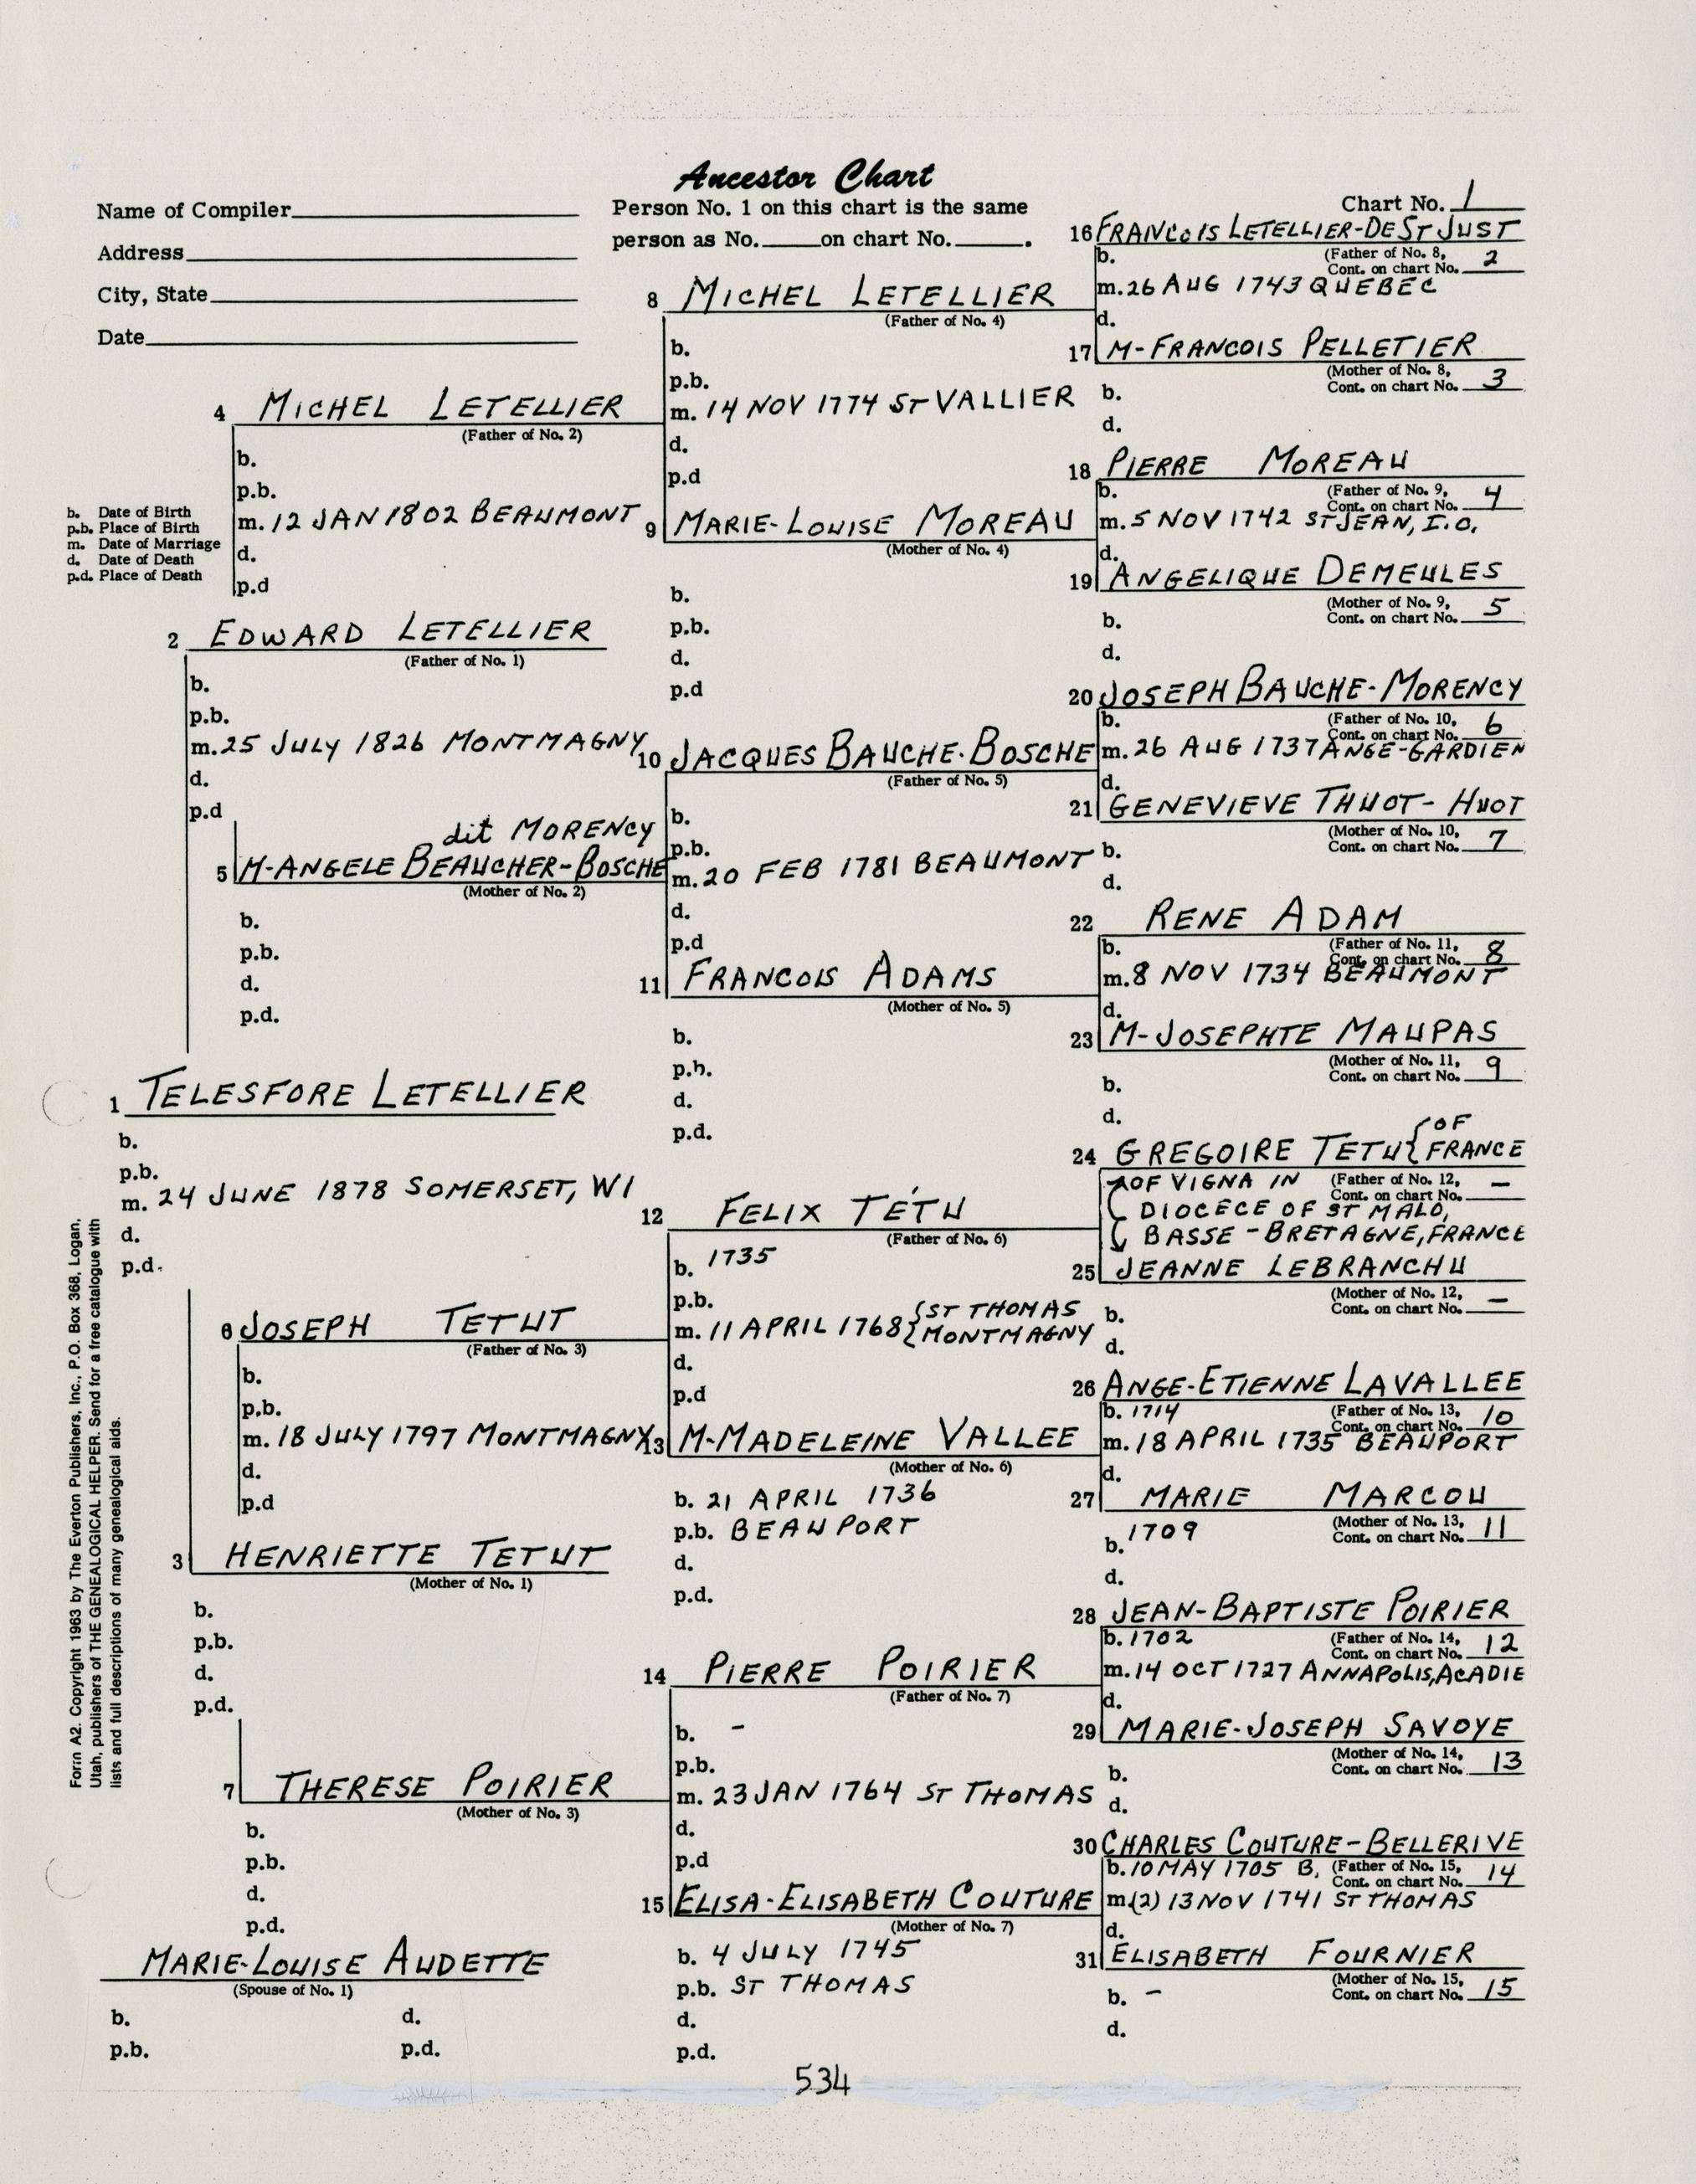 Ancestor Chart
Name of Compiler
Address
City, State
Date
Person No. 1 on this chart is the same
person as No. on chart No. .
Chart No. 1
b. Date of Birth
p.b. Place of Birth
m. Date of Marriage
d. Date of Death
p.d. Place of Death
1 TELESFORE LETELLIER
b.
p.b.
m. 24 JUNE 1878 SOMERSET, WI
d.
p.d.
MARIE-LOUISE AUDETTE
(Spouse of No. 1)
b. d.
p.b. p.d.
2 EDWARD LETELLIER
(Father of No. 1)
b.
p.b.
m. 25 JULY 1826 MONTMAGNY
d.
p.d
3 HENRIETTE TETUT
(Mother of No. 1)
b.
p.b.
d.
p.d.
4 MICHEL LETELLIER
(Father of No. 2)
b.
p.b.
m. 12 JAN 1802 BEAUMONT
d.
p.d
dit MORENCY
5 M-ANGELE BEAUCHER-BOSCHE
(Mother of No. 2)
b.
p.b.
d.
p.d.
6 JOSEPH TETUT
(Father of No. 3)
b.
p.b.
m. 18 JULY 1797 MONTMAGNY
d.
p.d
7 THERESE POIRIER
(Mother of No. 3)
b.
p.b.
d.
p.d.
8 MICHEL LETELLIER
(Father of No. 4)
b.
p.b.
m. 14 NOV 1774 ST VALLIER
d.
p.d
9 MARIE-LOUISE MOREAU
(Mother of No. 4)
b.
p.b.
d.
p.d
10 JACQUES BAUCHE-BOSCHE
(Father of No. 5)
b.
p.b.
m. 20 FEB 1781 BEAUMONT
d.
p.d
11 FRANCOIS ADAMS
(Mother of No. 5)
b.
p.b.
d.
p.d.
12 FELIX TÉTU
(Father of No. 6)
b. 1735
p.b.
m. 11 APRIL 1768 { ST THOMAS
MONTMAGNY
d.
p.d
13 M-MADELEINE VALLEE
(Mother of No. 6)
b. 21 APRIL 1736
p.b. BEAUPORT
d.
p.d.
14 PIERRE POIRIER
(Father of No. 7)
b. -
p.b.
m. 23 JAN 1764 ST THOMAS
d.
p.d
15 ELISA-ELISABETH COUTURE
(Mother of No. 7)
b. 4 JULY 1745
p.b. ST THOMAS
d.
p.d.
16 FRANCOIS LETELLIER-DE ST JUST
b. (Father of No. 8,
Cont. on chart No. 2
m. 26 AUG 1743 QUEBEC
d.
17 M-FRANCOIS PELLETIER
(Mother of No. 8,
Cont. on chart No. 3
b.
d.
18 PIERRE MOREAU
b. (Father of No. 9,
Cont. on chart No. 4
m. 5 NOV 1742 ST JEAN, I.O.
d.
19 ANGELIQUE DEMEULES
(Mother of No. 9,
Cont. on chart No. 5
b.
d.
20 JOSEPH BAUCHE-MORENCY
b. (Father of No. 10,
Cont. on chart No. 6
m. 26 AUG 1737 ANGE-GARDIEN
d.
21 GENEVIEVE THUOT-HUOT
(Mother of No. 10,
Cont. on chart No. 7
b.
d.
22 RENE ADAM
b. (Father of No. 11,
Cont. on chart No. 8
m. 8 NOV 1734 BEAUMONT
d.
23 M-JOSEPHTE MAUPAS
(Mother of No. 11,
Cont. on chart No. 9
b.
d.
24 GREGOIRE TETU { OF
FRANCE
OF VIGNA IN (Father of No. 12,
Cont. on chart No. -
DIOCECE OF ST MALO,
BASSE-BRETAGNE, FRANCE
25 JEANNE LEBRANCHU
(Mother of No. 12,
Cont. on chart No. -
b.
d.
26 ANGE-ETIENNE LAVALLEE
b. 1714 (Father of No. 13,
Cont. on chart No. 10
m. 18 APRIL 1735 BEAUPORT
d.
27 MARIE MARCOU
(Mother of No. 13,
Cont. on chart No. 11
b. 1709
d.
28 JEAN-BAPTISTE POIRIER
b. 1702 (Father of No. 14,
Cont. on chart No. 12
m. 14 OCT 1727 ANNAPOLIS, ACADIE
d.
29 MARIE-JOSEPH SAVOYE
(Mother of No. 14,
Cont. on chart No. 13
b.
d.
30 CHARLES COUTURE-BELLERIVE
b. 10 MAY 1705 B. (Father of No. 15,
Cont. on chart No. 14
m (2) 13 NOV 1741 ST THOMAS
d.
31 ELISABETH FOURNIER
(Mother of No. 15,
Cont. on chart No. 15
b. -
d.
Form A2. Copyright 1963 by The Everton Publishers, Inc., P.O. Box 368, Logan,
Utah, publishers of THE GENEALOGICAL HELPER. Send for a free catalogue with
lists and full descriptions of many genealogical aids.
534